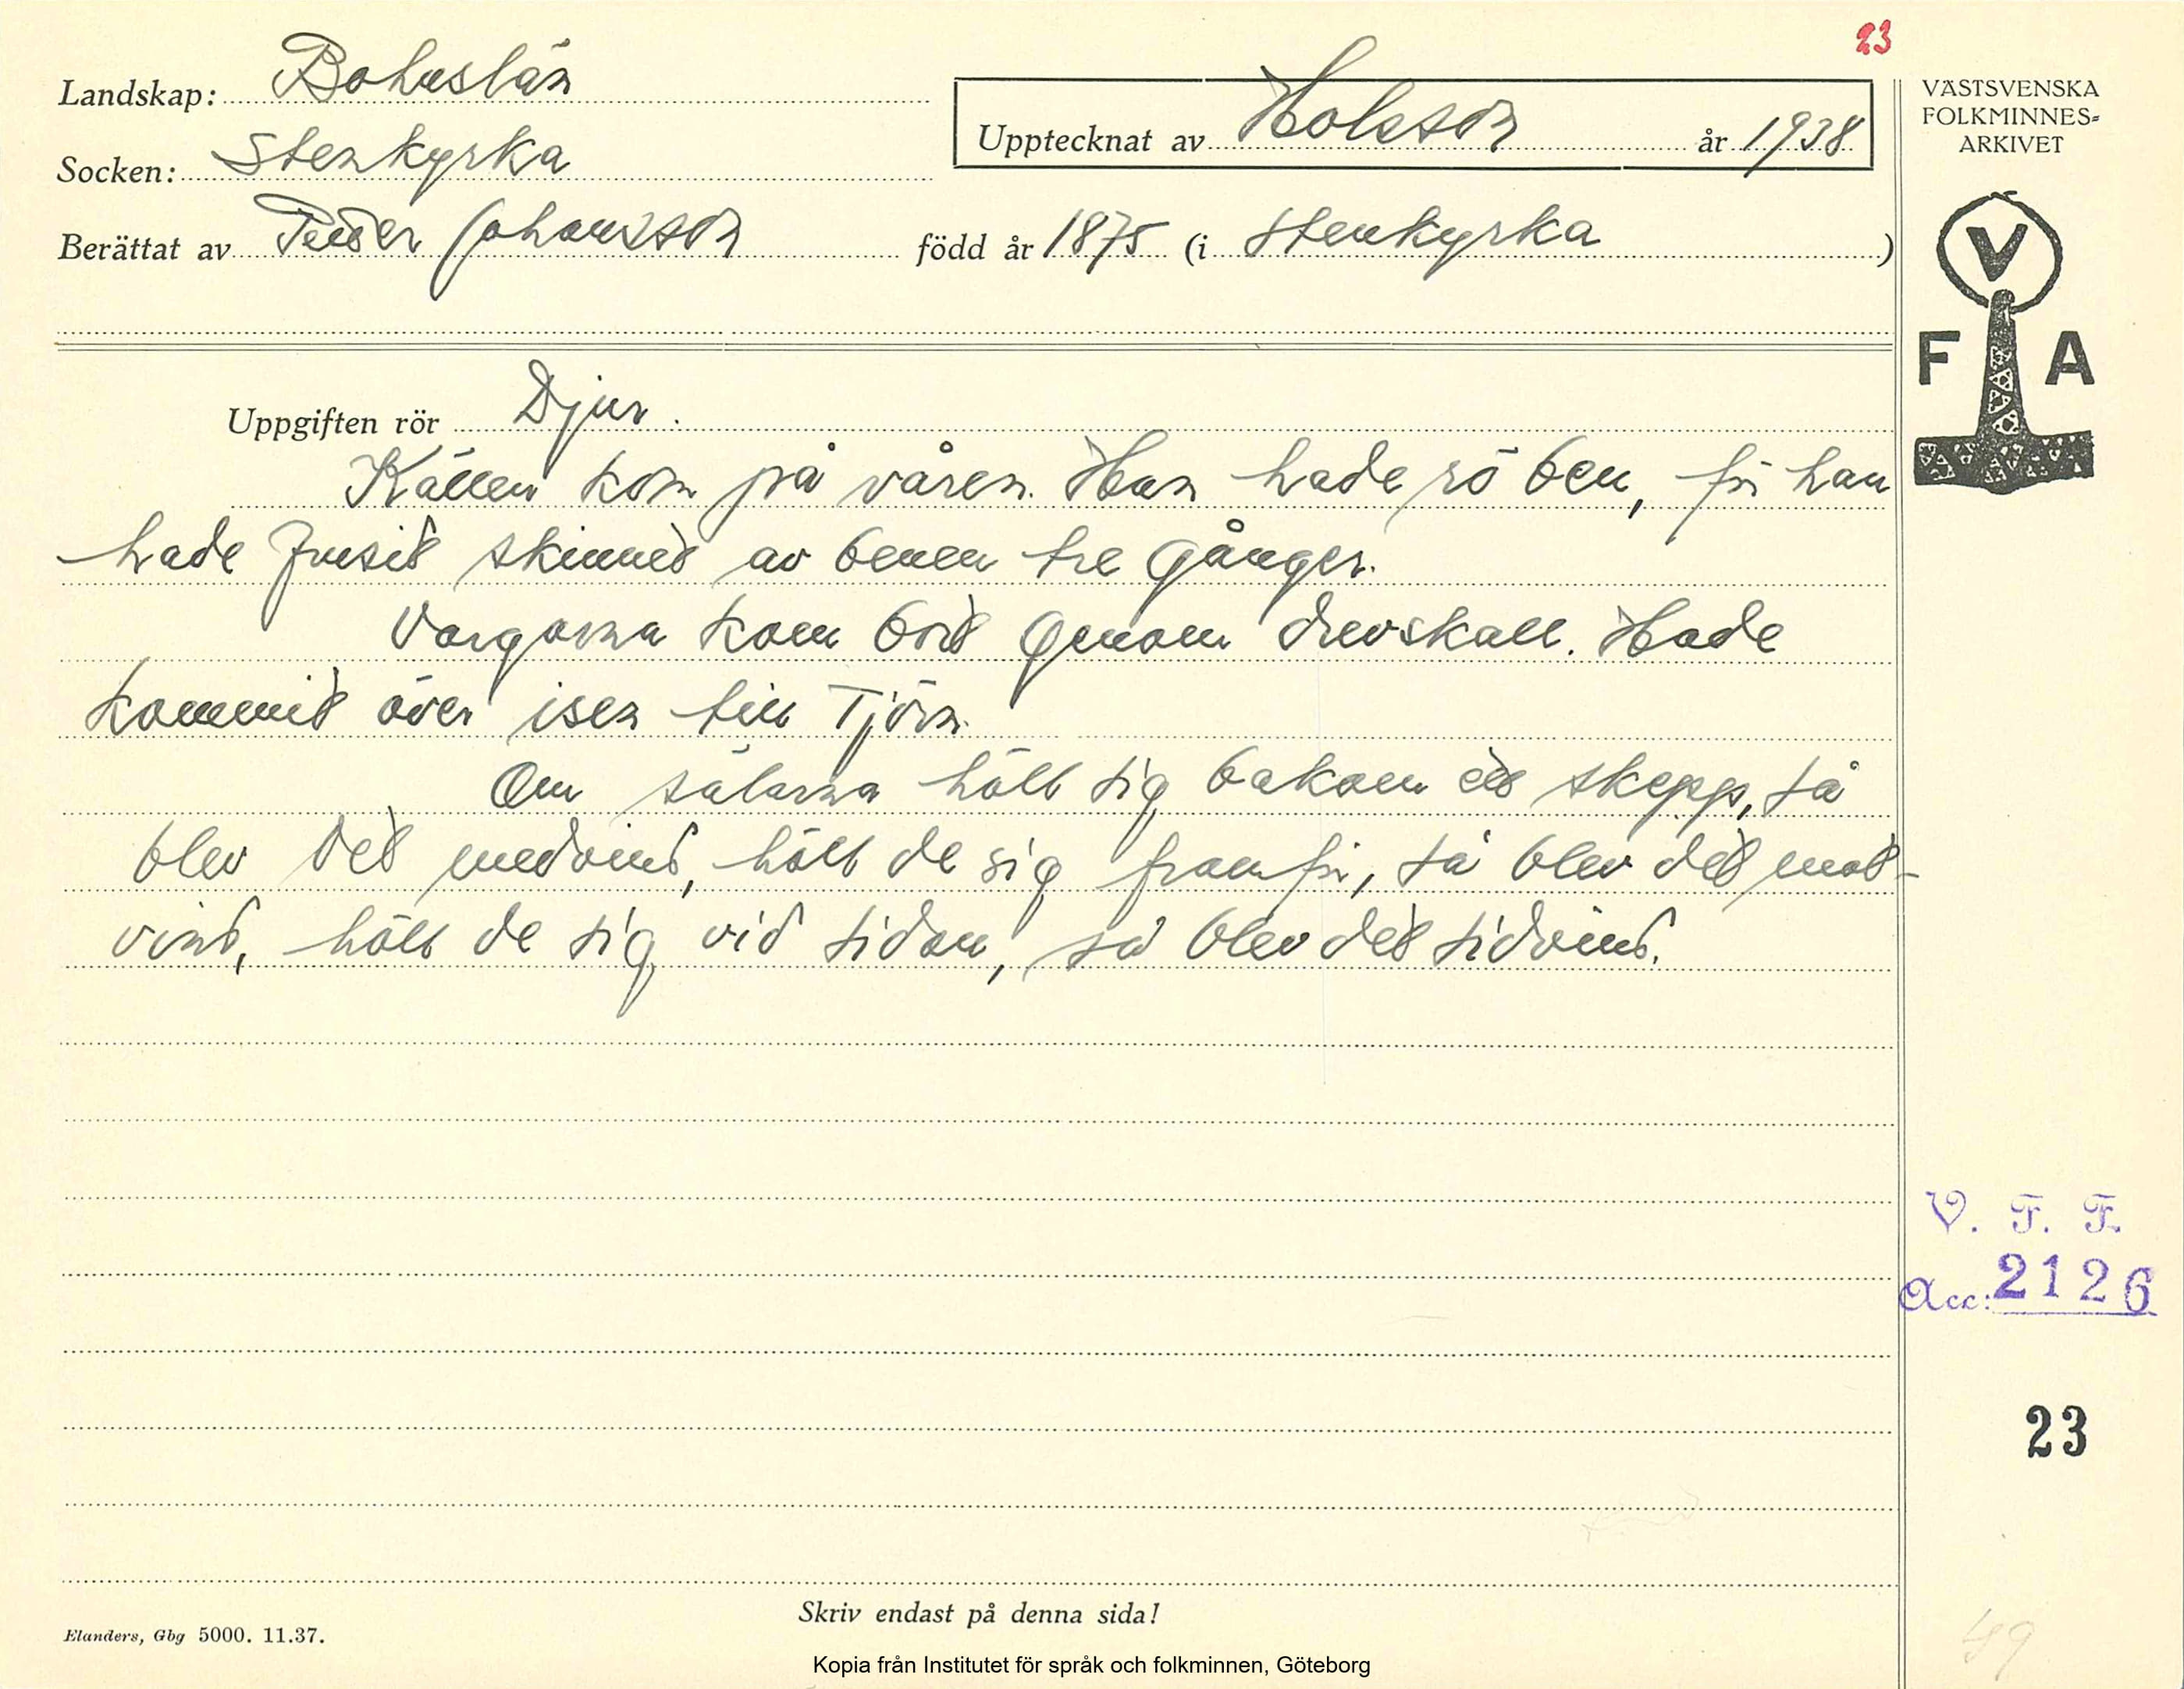 23
Landskap: Bohuslän
Upptecknat av Holsson år 1938
Socken: Stenkyrka
Berättat av Peder Johansson född år 1875 (i Stenkyrka )
VÄSTSVENSKA
FOLKMINNES-
ARKIVET
V
F A
Uppgiften rör Djur.
Källen kom på våren. Han hade rö ben, för han
hade frusit skinnet av benen tre gånger.
Vargarna kom bort genom drevskall. Hade
kommit över isen till Tjörn.
Om sälarna höll sig bakom ett skepp, så
blev det medvind, höll de sig framför, så blev det mot-
vind, höll de sig vid sidan, så blev det sidvind.
V. F. F.
Acc: 2126
23
Skriv endast på denna sida!
Elanders, Gbg 5000. 11.37.
49
Kopia från Institutet för språk och folkminnen, Göteborg